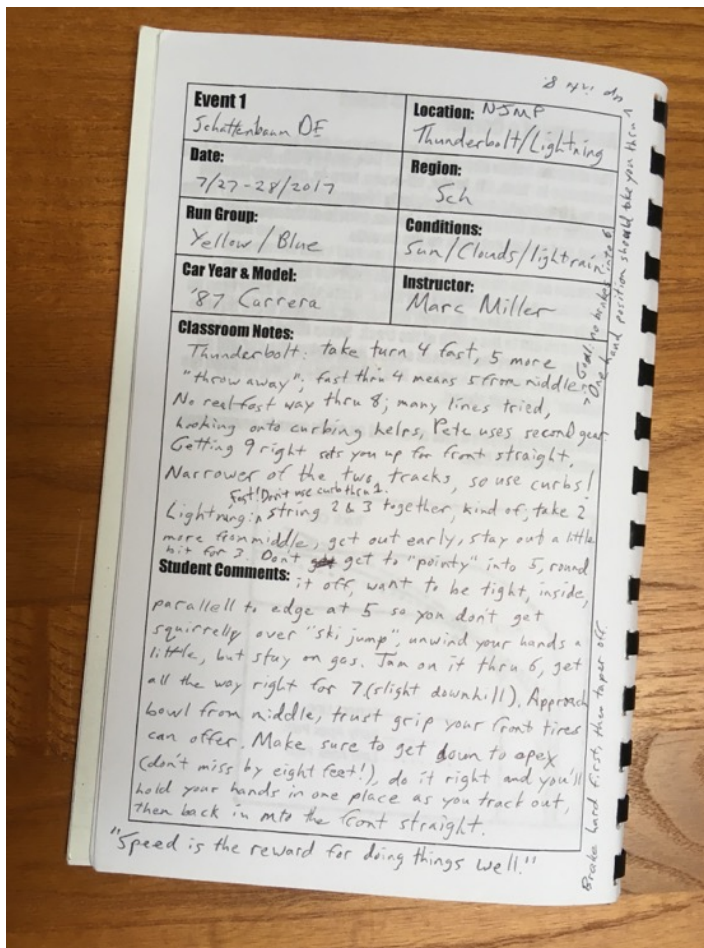 Event 1
Schattenbaum DE
Location: NJMP
Thunderbolt/Lightning
Date:
7/27-28/2017
Region:
Sch
Run Group:
Yellow/Blue
Conditions:
Sun/Clouds/light rain
Car Year & Model:
'87 Carrera
Instructor:
Marc Miller
Classroom Notes:
Thunderbolt: take turn 4 fast, 5 more
"throw away"; fast thru 4 means 5 from middle.
No real fast way thru 8; many lines tried,
hooking onto curbing helps, Pete uses second gear.
Getting 9 right sets you up for front straight,
Narrower of the two tracks, so use curbs!
Fast! Don't use curb thru 1.
Lightning: string 2 & 3 together, kind of; take 2
more from middle, get out early, stay out a little
bit for 3. Don't get to "pointy" into 5, round
Student Comments: it off, want to be tight, inside,
parallell to edge at 5 so you don't get
squirrelly over "ski jump", unwind your hands a
little, but stay on gas. Jam on it thru 6, get
all the way right for 7 (slight downhill). Approach
bowl from middle, trust grip your front tires
can offer. Make sure to get down to apex
(don't miss by eight feet!), do it right and you'll
hold your hands in one place as you track out,
then back in into the front straight.
"Speed is the reward for doing things well."
Brake hard first, then taper off
Goal: no brakes into 6
One hand position should take you thru
up into 8.